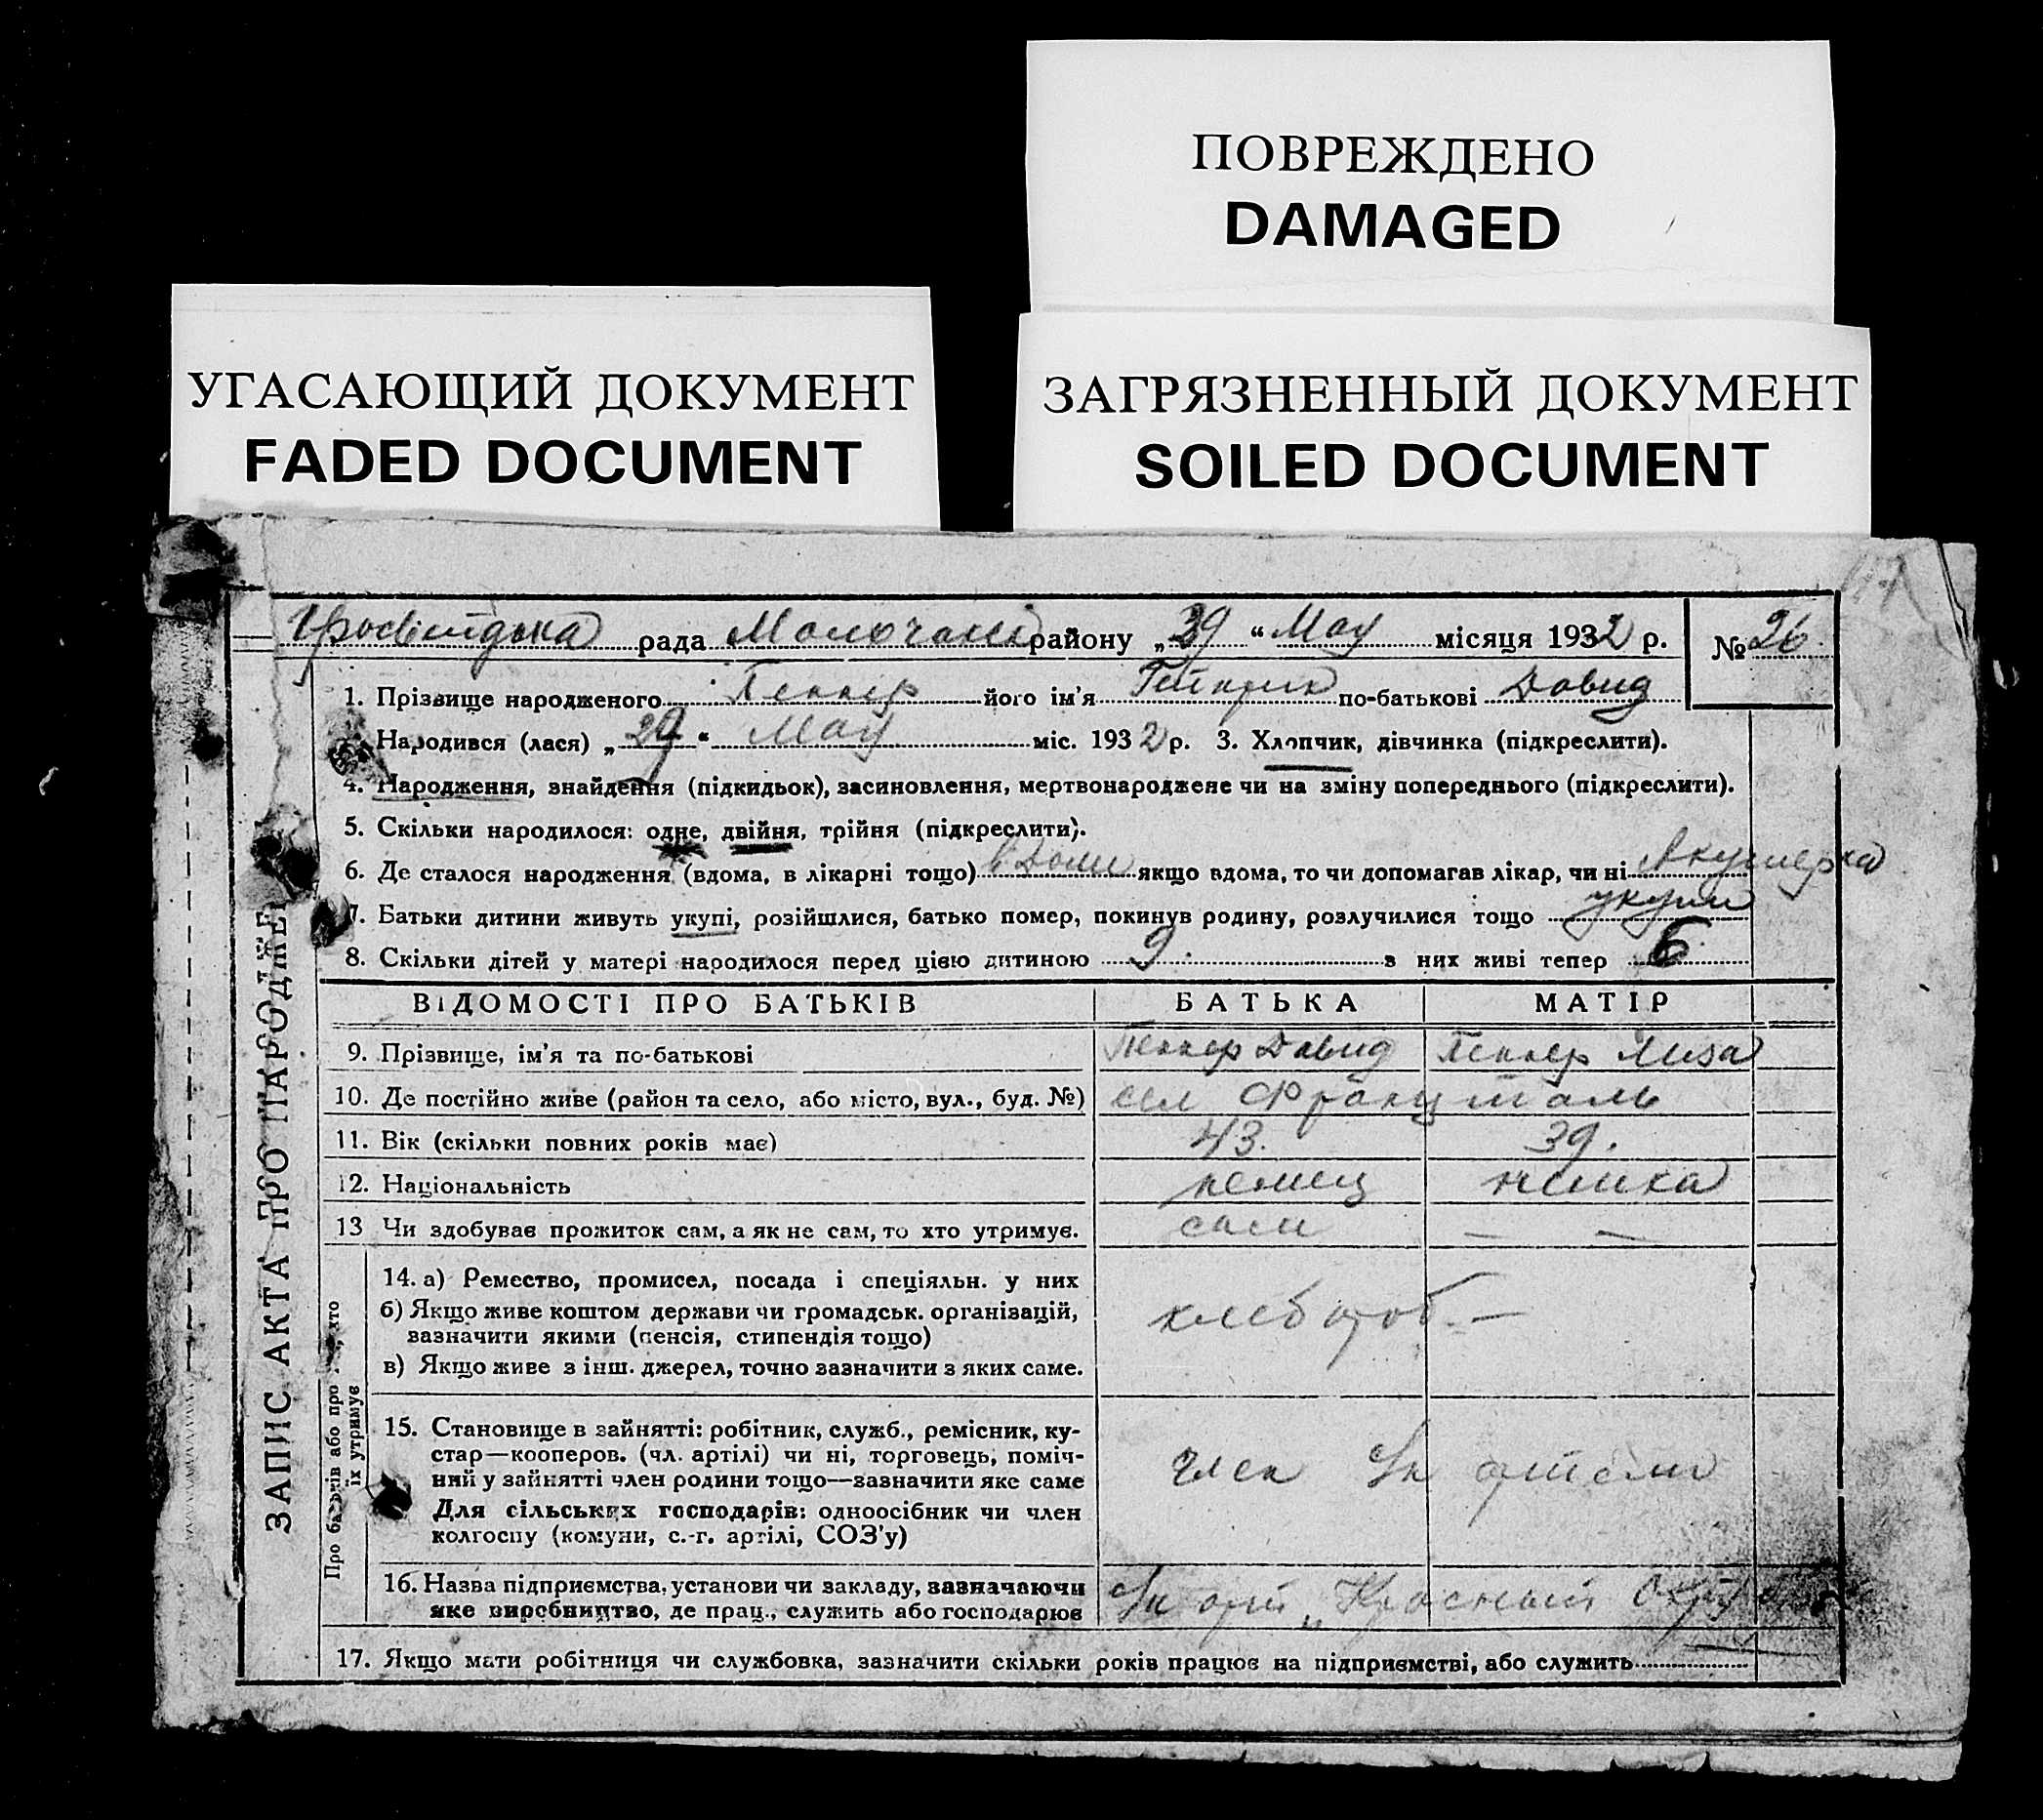 ПОВРЕЖДЕНО
DAMAGED
УГАСАЮЩИЙ ДОКУМЕНТ
FADED DOCUMENT
ЗАГРЯЗНЕННЫЙ ДОКУМЕНТ
SOILED DOCUMENT
рада Молочанс району „ “ Мау місяця 1932 р. № 26
1. Прізвище народженого його ім'я по-батькові Давид
Народився (лася) „29“ Мау міс. 1932 р. 3. Хлопчик, дівчинка (підкреслити).
4. Народження, знайдення (підкидьок), засиновлення, мертвонароджене чи на зміну попереднього (підкреслити).
5. Скільки народилося: одне, двійня, трійня (підкреслити).
6. Де сталося народження (вдома, в лікарні тощо) в доми якщо вдома, то чи допомагав лікар, чи ні Акушерка
7. Батьки дитини живуть укупі, розійшлися, батько помер, покинув родину, розлучилися тощо укупи
8. Скільки дітей у матері народилося перед цією дитиною 9 з них живі тепер 6
ВІДОМОСТІ ПРО БАТЬКІВ БАТЬКА МАТІР
9. Прізвище, ім'я та по-батькові Давид Лиза
10. Де постійно живе (район та село, або місто, вул., буд. №) сел
11. Вік (скільки повних років має) 43. 39.
12. Національність немец немка
13 Чи здобуває прожиток сам, а як не сам, то хто утримує. сам — —
14. а) Ремество, промисел, посада і спеціяльн. у них
б) Якщо живе коштом держави чи громадськ. організацій,
зазначити якими (пенсія, стипендія тощо) хлебороб. —
в) Якщо живе з інш. джерел, точно зазначити з яких саме.
15. Становище в зайнятті: робітник, служб., ремісник, ку-
стар—кооперов. (чл. артілі) чи ні, торговець, поміч-
ний у зайнятті член родини тощо—зазначити яке саме член артели
Для сільських господарів: одноосібник чи член
колгоспу (комуни, с.-г. артілі, СОЗ'у)
16. Назва підприємства, установи чи закладу, зазначаючи
яке виробництво, де прац., служить або господарює арт „Красный
17. Якщо мати робітниця чи службовка, зазначити скільки років працює на підприємстві, або служить
ЗАПИС АКТА ПРО НАРОДЖЕ
Про батьків або про хто
їх утримує